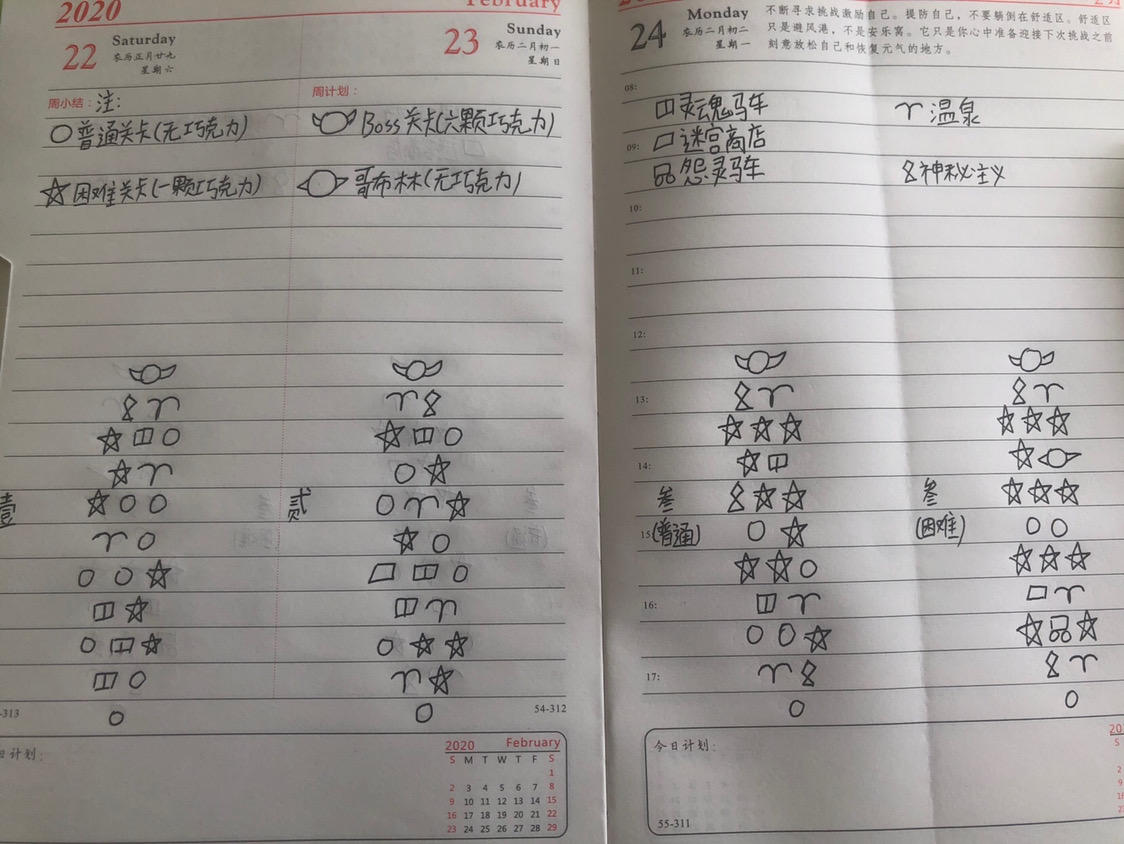 2020
February
22
Saturday
农历正月廿九
星期六
23
Sunday
农历二月初一
星期日
周小结：注：
周计划：
普通关卡(无巧克力)
Boss关卡(六颗巧克力)
困难关卡(一颗巧克力)
哥布林(无巧克力)
壹
贰
-313
54-312
日计划：
2020 February
S M T W T F S
1
2 3 4 5 6 7 8
9 10 11 12 13 14 15
16 17 18 19 20 21 22
23 24 25 26 27 28 29
24
Monday
农历二月初二
星期一
不断寻求挑战激励自己。提防自己，不要躺倒在舒适区。舒适区
只是避风港，不是安乐窝。它只是你心中准备迎接下次挑战之前
刻意放松自己和恢复元气的地方。
08:
灵魂马车
温泉
09:
迷宫商店
怨灵马车
神秘主义
10:
11:
12:
13:
14:
叁
叁
15:
(普通)
(困难)
16:
17:
今日计划：
55-311
20
S
2
9